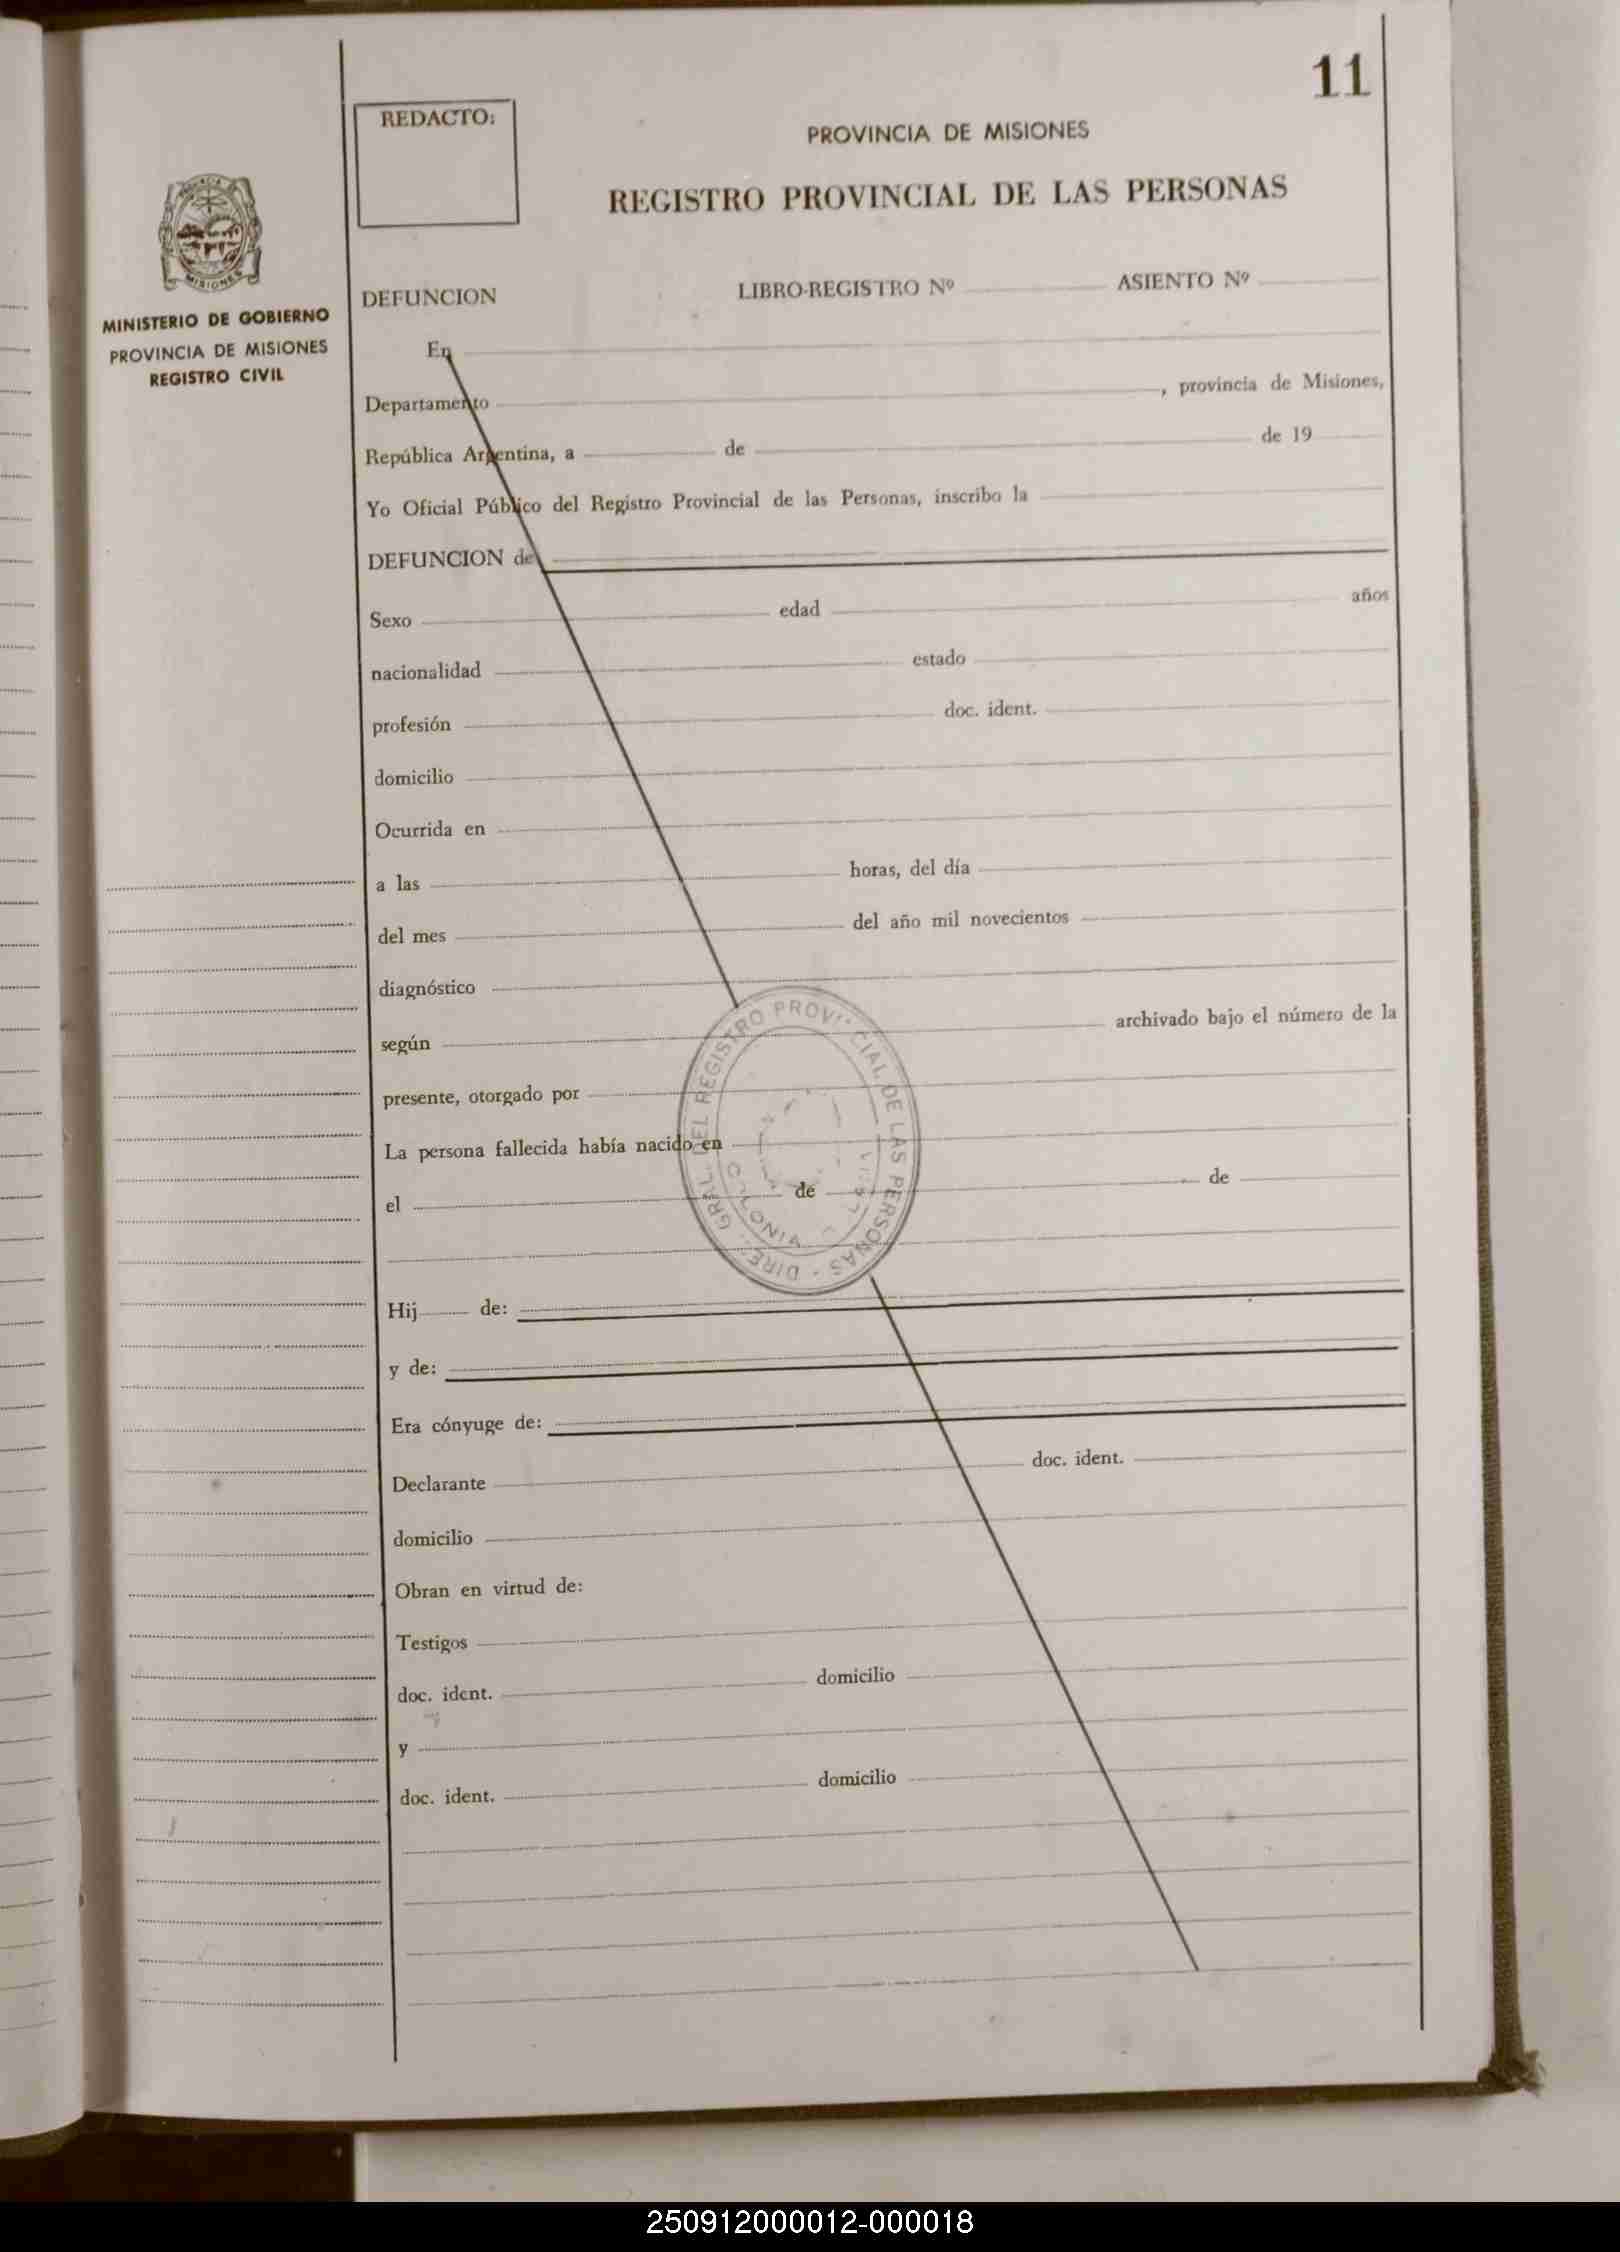 11
REDACTO:
PROVINCIA DE MISIONES
REGISTRO PROVINCIAL DE LAS PERSONAS
MISIONES
MINISTERIO DE GOBIERNO
PROVINCIA DE MISIONES
REGISTRO CIVIL
DEFUNCION LIBRO-REGISTRO Nº ASIENTO Nº
En
Departamento , provincia de Misiones,
República Argentina, a de de 19
Yo Oficial Público del Registro Provincial de las Personas, inscribo la
DEFUNCION de
Sexo edad años
nacionalidad estado
profesión doc. ident.
domicilio
Ocurrida en
a las horas, del día
del mes del año mil novecientos
diagnóstico
según archivado bajo el número de la
presente, otorgado por
La persona fallecida había nacido en
el de de
Hij de:
y de:
Era cónyuge de:
Declarante doc. ident.
domicilio
Obran en virtud de:
Testigos
doc. ident. domicilio
y
doc. ident. domicilio
DEL REGISTRO PROVINCIAL DE LAS PERSONAS - DIREC. GRAL.
COLONIA
250912000012-000018